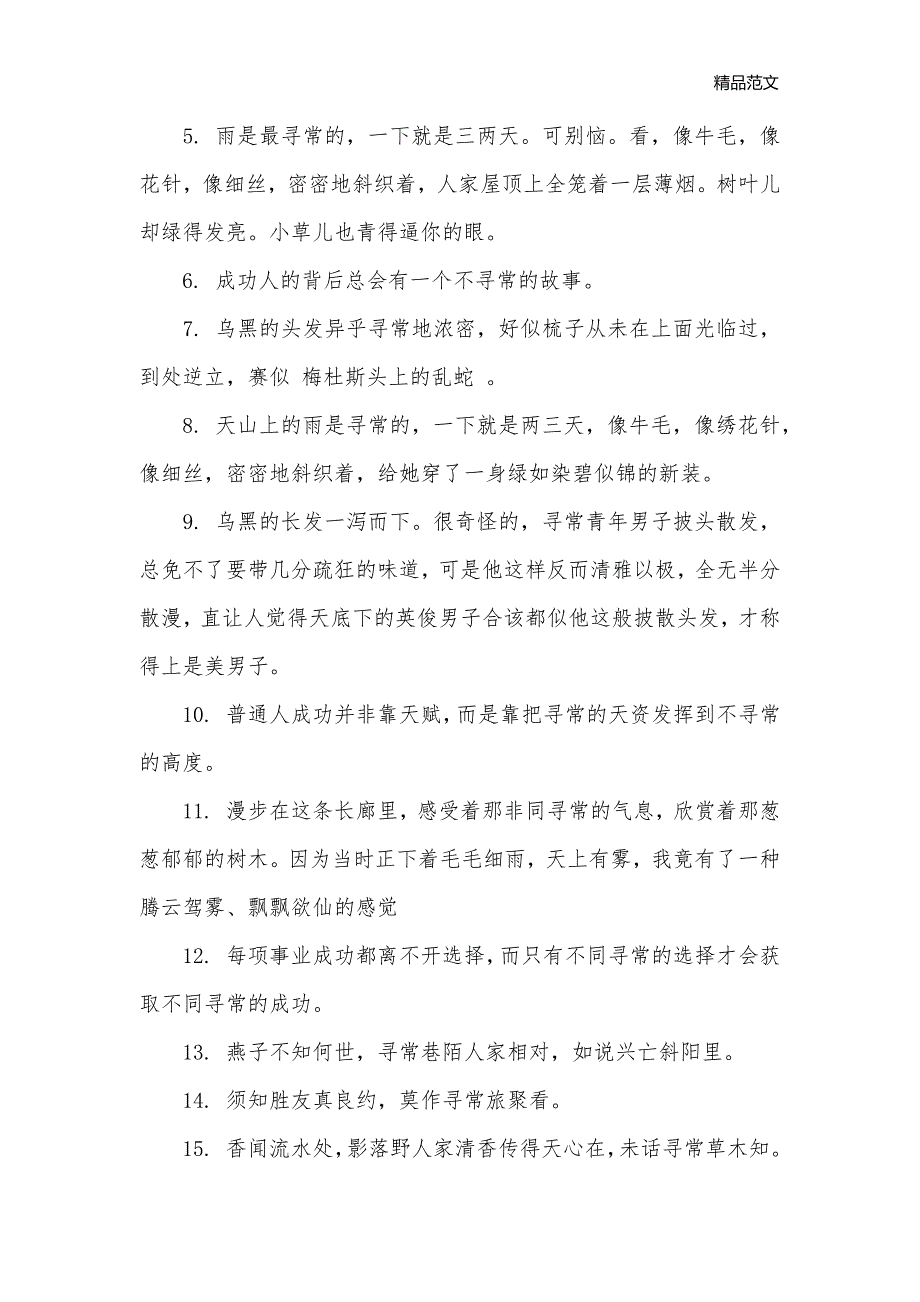 精品范文
5. 雨是最寻常的，一下就是三两天。可别恼。看，像牛毛，像
花针，像细丝，密密地斜织着，人家屋顶上全笼着一层薄烟。树叶儿
却绿得发亮。小草儿也青得逼你的眼。
6. 成功人的背后总会有一个不寻常的故事。
7. 乌黑的头发异乎寻常地浓密，好似梳子从未在上面光临过，
到处逆立，赛似 梅杜斯头上的乱蛇 。
8. 天山上的雨是寻常的，一下就是两三天，像牛毛，像绣花针，
像细丝，密密地斜织着，给她穿了一身绿如染碧似锦的新装。
9. 乌黑的长发一泻而下。很奇怪的，寻常青年男子披头散发，
总免不了要带几分疏狂的味道，可是他这样反而清雅以极，全无半分
散漫，直让人觉得天底下的英俊男子合该都似他这般披散头发，才称
得上是美男子。
10. 普通人成功并非靠天赋，而是靠把寻常的天资发挥到不寻常
的高度。
11. 漫步在这条长廊里，感受着那非同寻常的气息，欣赏着那葱
葱郁郁的树木。因为当时正下着毛毛细雨，天上有雾，我竟有了一种
腾云驾雾、飘飘欲仙的感觉
12. 每项事业成功都离不开选择，而只有不同寻常的选择才会获
取不同寻常的成功。
13. 燕子不知何世，寻常巷陌人家相对，如说兴亡斜阳里。
14. 须知胜友真良约，莫作寻常旅聚看。
15. 香闻流水处，影落野人家清香传得天心在，未话寻常草木知。